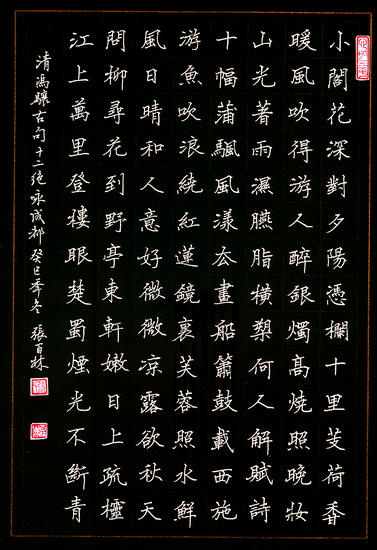 小閣花深對夕陽憑欄十里芰荷香
暖風吹得游人醉銀燭高燒照晚妝
山光著雨濕臙脂橫槊何人解賦詩
十幅蒲颿風漾畫船簫鼓載西施
游魚吹浪繞紅蓮鏡裏芙蓉照水鮮
風日晴和人意好微微凉露欲秋天
問柳尋花到野亭東軒嫩日上疏欞
江上萬里登樓眼楚蜀煙光不斷青
清馮驤古句十二絕咏成都 癸巳季冬 張百林